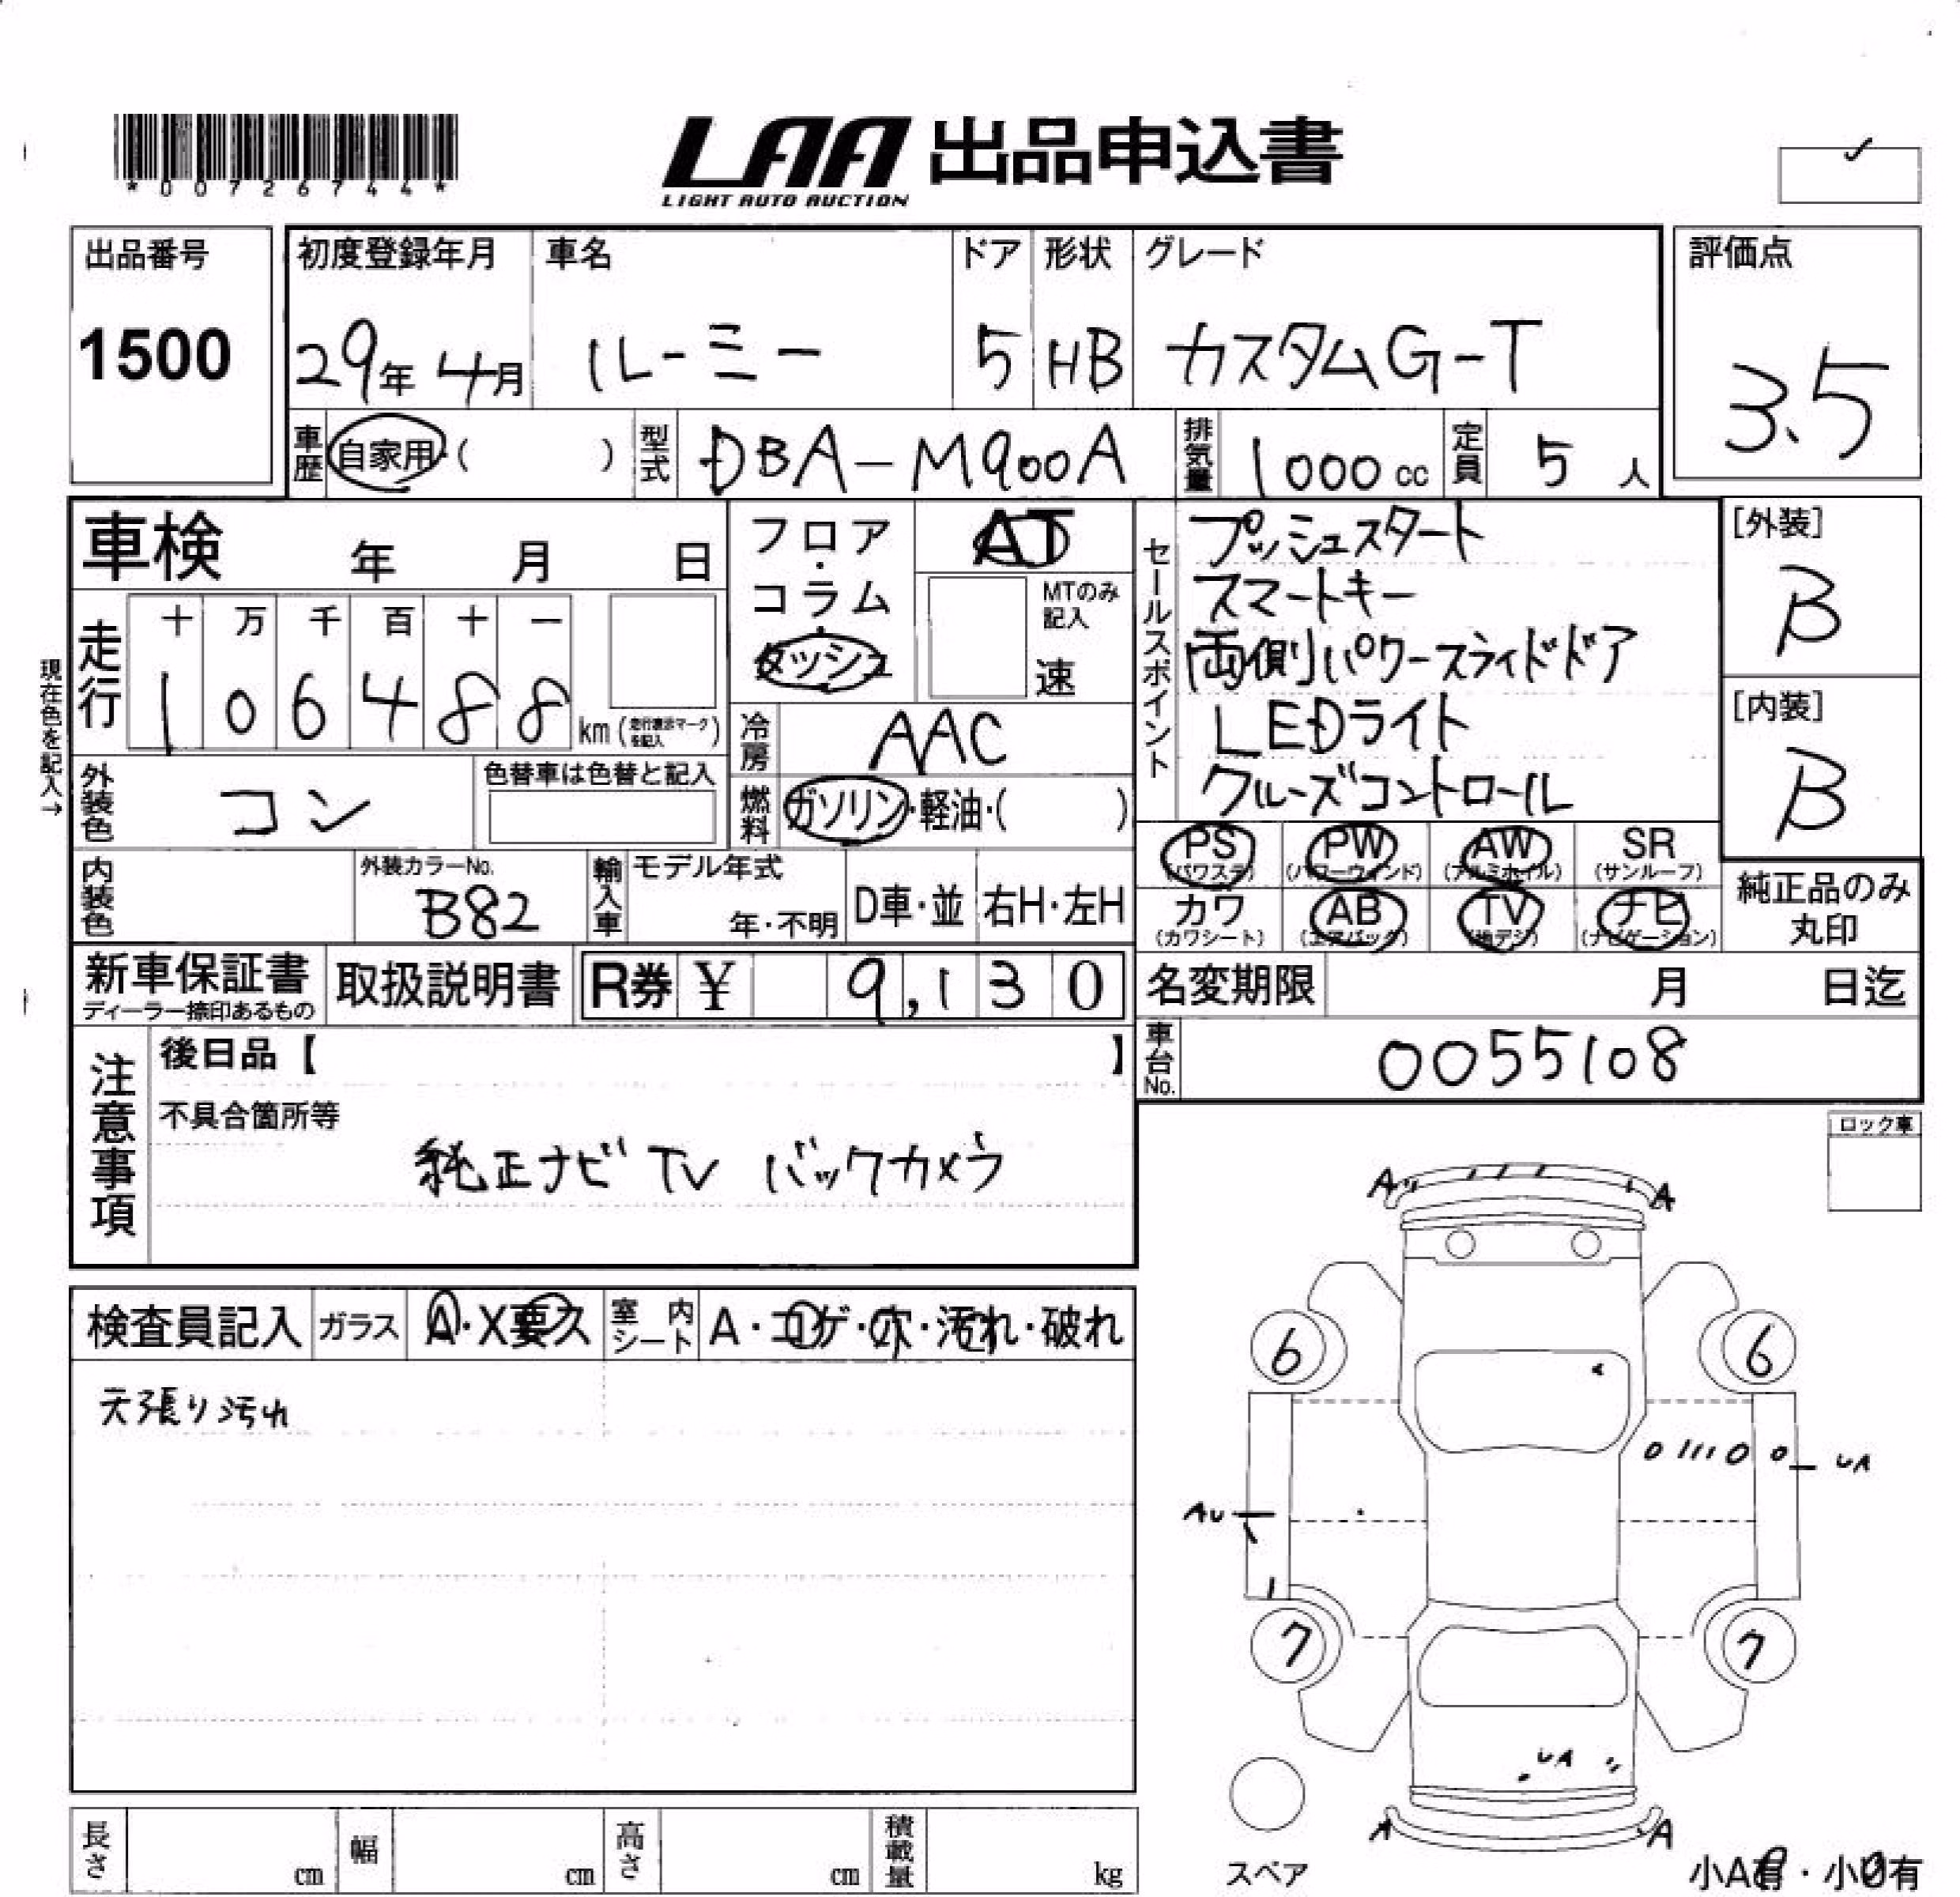 *00726744*
LAA 出品申込書
LIGHT AUTO AUCTION
出品番号
1500
初度登録年月
29年 4月
車名
ルーミー
ドア
5
形状
HB
グレード
カスタムG-T
評価点
3.5
車歴
自家用・( )
型式
DBA-M900A
排気量
1000 cc
定員
5 人
車検 年 月 日
フロア・コラム・ダッシュ
AT
MTのみ記入
速
走行
十 万 千 百 十 一
1 0 6 4 8 8 km (走行表示マークを記入)
現在色を記入→
冷房
AAC
外装色
コン
色替車は色替と記入
燃料
ガソリン・軽油・( )
内装色
外装カラーNo.
B82
輸入車
モデル年式
年・不明
D車・並
右H・左H
セールスポイント
プッシュスタート
スマートキー
両側パワースライドドア
LEDライト
クルーズコントロール
[外装]
B
[内装]
B
PS (パワステ)
PW (パワーウィンド)
AW (アルミホイル)
SR (サンルーフ)
カワ (カワシート)
AB (エアバック)
TV (地デジ)
ナビ (ナビゲーション)
純正品のみ
丸印
新車保証書
ディーラー捺印あるもの
取扱説明書
R券 ¥ 9,130
名変期限 月 日迄
車台No.
0055108
注意事項
後日品【 】
不具合箇所等
純正ナビ TV バックカメラ
ロック車
検査員記入
ガラス
A・X要ス
室内シート
A・コゲ・穴・汚れ・破れ
天張り汚れ
A A
6 6
UA
AU
7 7
UA
A A
スペア
小A有・小U有
長さ cm
幅 cm
高さ cm
積載量 kg